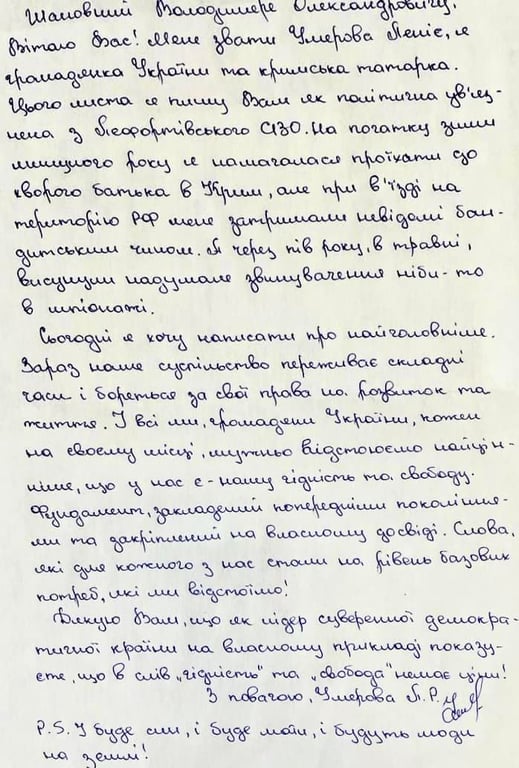 Шановний Володимире Олександровичу,
Вітаю Вас! Мене звати Умерова Леніє, я
громадянка України та кримська татарка.
Цього листа я пишу Вам як політична ув'яз-
нена з Лефортівського СІЗО. На початку зими
минулого року я намагалася проїхати до
хворого батька в Крим, але при в'їзді на
територію РФ мене затримали невідомі бан-
дитським чином. А через пів року, в травні,
висунули надумане звинувачення ніби-то
в шпіонажі.
Сьогодні я хочу написати про найголовніше.
Зараз наше суспільство переживає складні
часи і бореться за свої права на розвиток та
життя. І всі ми, громадяни України, кожен
на своєму місці, мужньо відстоюємо найцін-
ніше, що у нас є - нашу гідність та свободу.
Фундамент, закладений попередніми поколінна-
ми та закріплений на власному досвіді. Слова,
які для кожного з нас стали на рівень базових
потреб, які ми відстоїмо!
Дякую Вам, що як лідер суверенної демокра-
тичної країни на власному прикладі показу-
єте, що в слів „гідність" та „свобода" немає ціни!
З повагою, Умерова Л.Р.
P.S. І буде син, і буде мати, і будуть люди
на землі!